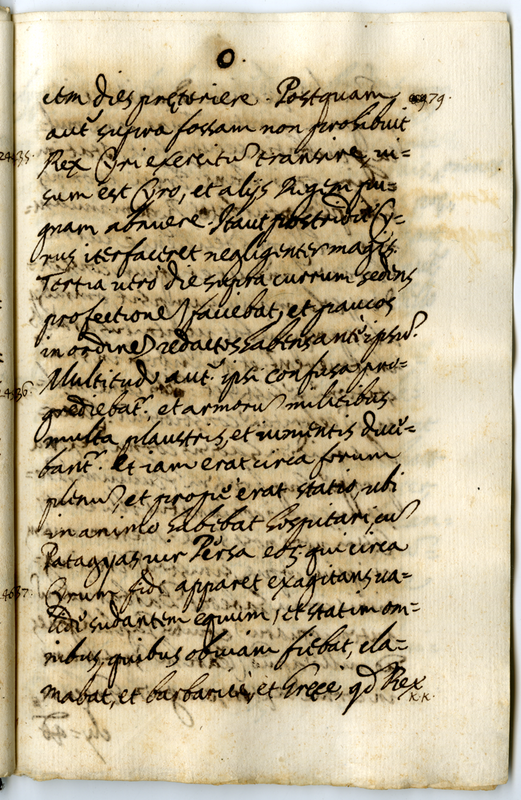 O.
ctm dies pręteriere. Postquam 979.
aut̃ supra fossam non prohibuit
2435. Rex Cyri exercitũ transire, ui-
sum est Cyro, et alijs Regem pu-
gnam abnuere. Itaut postridie Cy-
rus iter faceret negligenter magis.
Tertia uerò die supra currum sedens
profectionẽ faciebat, et paucos
in ordinẽ redactos habens antè ipsũ.
2436. Multitudo aut̃ ipsi confusa pro-
grediebat.ʳ, et armorũ militibus
multa plaustris, et iumentis duce-
bant.ʳ Et iam erat circa forum
plenũ, et propè erat statio, ubi
in animo habebat hospitari, cũ
Patagyas uir Persa eos, qui circa
2437. Cyrum fidi apparet exagitans ua-
lidè sudantem equum, et statim om-
nibus, quibus obuiam fiebat, cla-
mabat, et barbaricè, et Gręcè, qd Rex
KK.